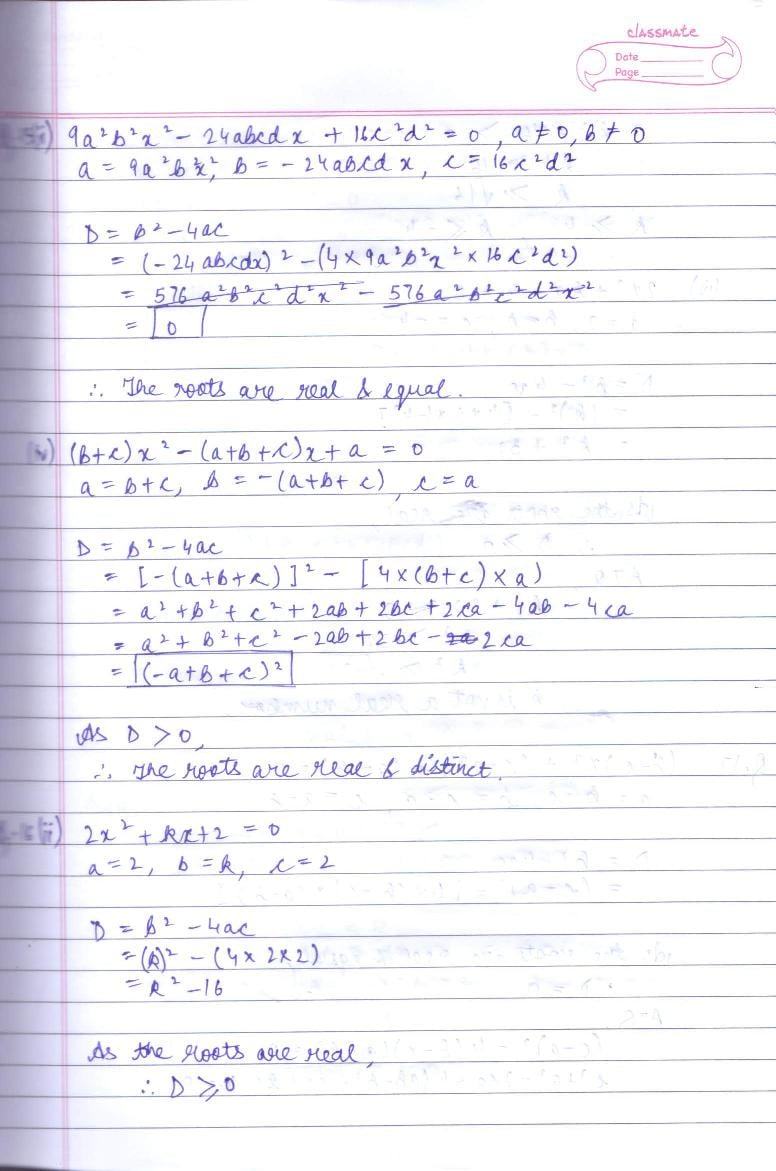 classmate
Date
Page
9a²b²x² - 24abcdx + 16c²d² = 0, a ≠ 0, b ≠ 0
a = 9a²b²x², b = -24abcdx, c = 16c²d²
D = b² - 4ac
= (-24abcdx)² - (4 × 9a²b²x² × 16c²d²)
= 576a²b²c²d²x² - 576a²b²c²d²x²
= 0
∴ The roots are real & equal.
(b+c)x² - (a+b+c)x + a = 0
a = b+c, b = -(a+b+c), c = a
D = b² - 4ac
= [-(a+b+c)]² - [4×(b+c)×a)
= a² + b² + c² + 2ab + 2bc + 2ca - 4ab - 4ca
= a² + b² + c² - 2ab + 2bc - 2ca
= (-a+b+c)²
As D > 0,
∴ The roots are real & distinct.
ii) 2x² + kx + 2 = 0
a = 2, b = k, c = 2
D = b² - 4ac
= (k)² - (4×2×2)
= k² - 16
As the roots are real,
∴ D ≥ 0